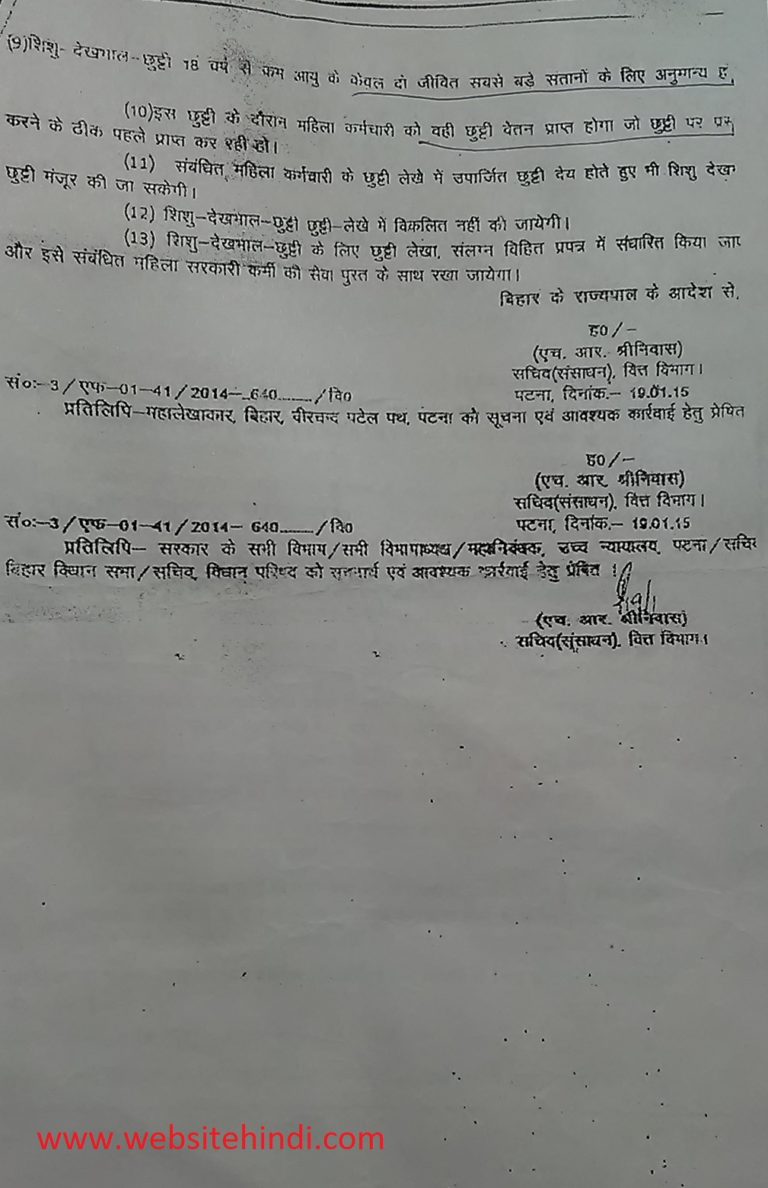 (9)शिशु- देखभाल-छुट्टी 18 वर्ष से कम आयु के केवल दो जीवित सबसे बड़े संतानों के लिए अनुमान्य
(10)इस छुट्टी के दौरान महिला कर्मचारी को वही छुट्टी वेतन प्राप्त होगा जो छुट्टी पर
करने के ठीक पहले प्राप्त कर रही हो।
(11) संबंधित महिला कर्मचारी के छुट्टी लेखे में उपार्जित छुट्टी देय होते हुए भी शिशु
छुट्टी मंजूर की जा सकेगी।
(12) शिशु-देखभाल-छुट्टी छुट्टी-लेखे में विकलित नहीं की जायेगी।
(13) शिशु-देखभाल-छुट्टी के लिए छुट्टी लेखा, संलग्न विहित प्रपत्र में संधारित किया
और इसे संबंधित महिला सरकारी कर्मी की सेवा पुस्त के साथ रखा जायेगा।
बिहार के राज्यपाल के आदेश से,
ह0/-
(एच. आर. श्रीनिवास)
सचिव(संसाधन), वित्त विभाग।
सं०:-3/एफ-01-41/2014- 640 /वि०
पटना, दिनांक.- 19.01.15
प्रतिलिपि-महालेखाकार, बिहार, वीरचन्द पटेल पथ, पटना को सूचना एवं आवश्यक कार्रवाई हेतु प्रेषित
ह0/-
(एच. आर. श्रीनिवास)
सचिव(संसाधन), वित्त विभाग।
सं०:-3/एफ-01-41/2014- 640 /वि०
पटना, दिनांक.- 19.01.15
प्रतिलिपि- सरकार के सभी विभाग/सभी विभागाध्यक्ष/महानिबंधक, उच्च न्यायालय, पटना/सचिव
बिहार विधान सभा/सचिव, विधान परिषद को सूचनार्थ एवं आवश्यक कार्रवाई हेतु प्रेषित ।
(एच. आर. श्रीनिवास)
सचिव(संसाधन), वित्त विभाग।
www.websitehindi.com